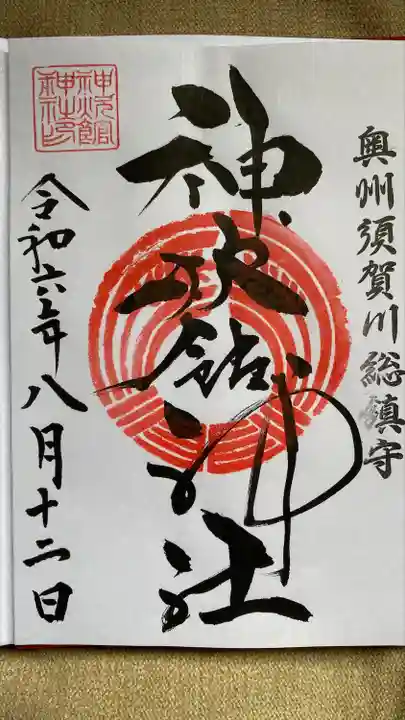 奥州須賀川総鎮守
神炊館神社
令和六年八月十二日
神炊館
神社印